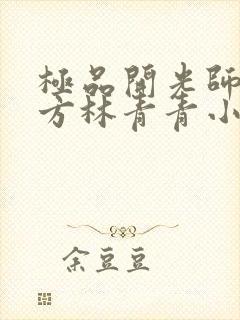 極品開光師
方林青青小
余豆豆